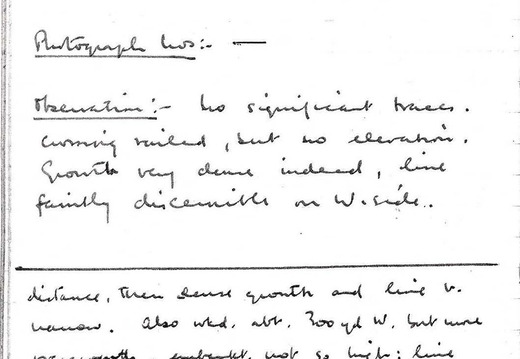 Photograph Nos:- —
Observation:- No significant traces.
Crossing railed, but no elevation.
Growth very dense indeed, line
faintly discernible on W. side.
distance, then dense growth and line v.
narrow. Also wkd. abt. 300 yd W. but more
embankt. not so high; line